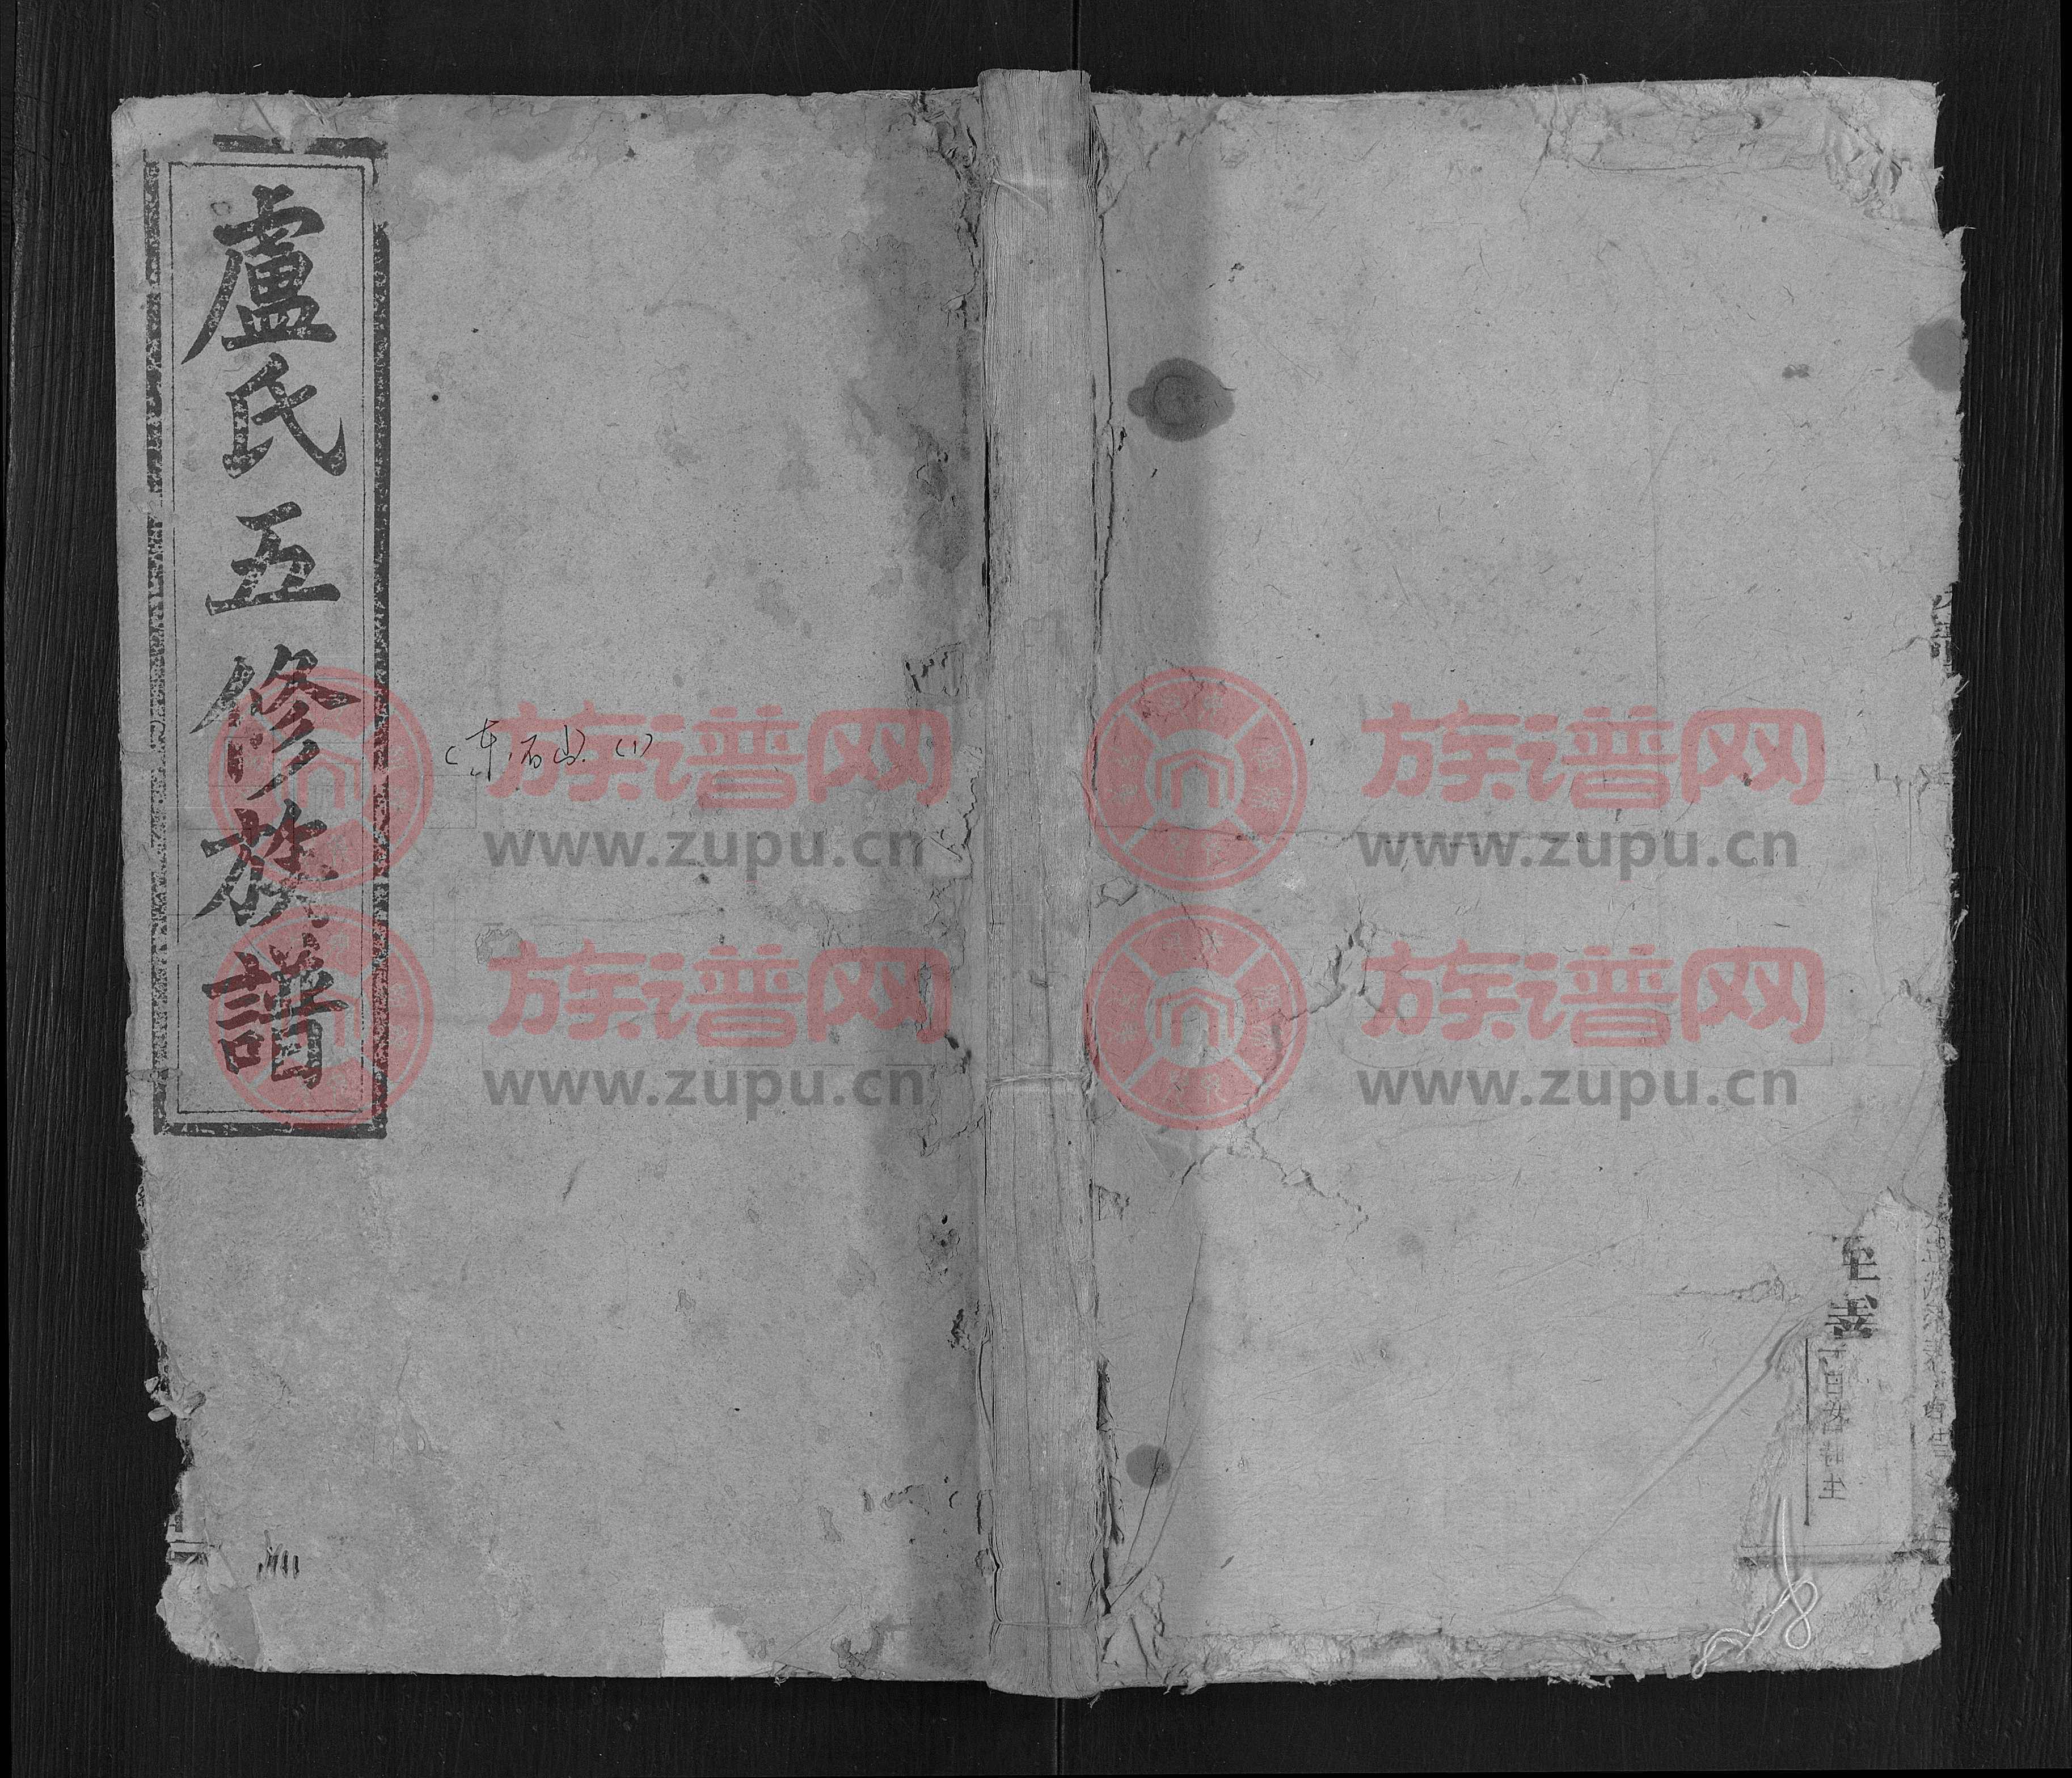 盧氏五修族譜
(东石山.(1)
族谱网
www.zupu.cn
族谱网
www.zupu.cn
族谱网
www.zupu.cn
族谱网
www.zupu.cn
至善